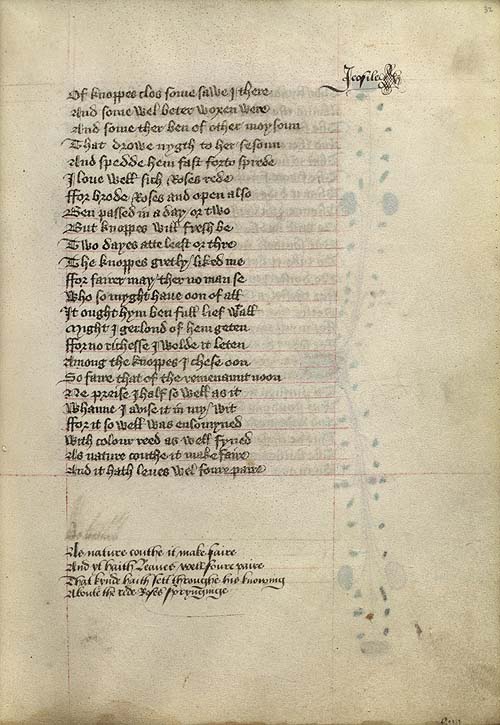 32
Of knoppes clos some sawe I there
And some wel beter woxen were
And some ther ben of other moysoun
That drowe nygth to her sesoun
And spedde hem fast forto sprede
I love well sich Roses rede
ffor brode Roses and open also
Ben passed in a day or two
But knoppes will fresh be
Two dayes atte leest or thre
The knoppes gretly liked me
ffor fairer may ther no man se
Who so myght haue oon of all
It ought hym ben full lief wall
Might I gerlond of hem geten
ffor no richesse I wolde it leten
Among the knoppes I chese oon
So faire that of the remenaunt noon
Ne preise I half so well as it
Whanne I avise it in my wit
ffor it so well was enlomyned
With colour reed as well fyned
As nature couthe it make faire
And it hath leues wel foure paire
As nature couthe it make faire
And yt haith Leaves well foure paire
That kynde haith sett throughe his knowing
Aboute the rede Roses sprynginge